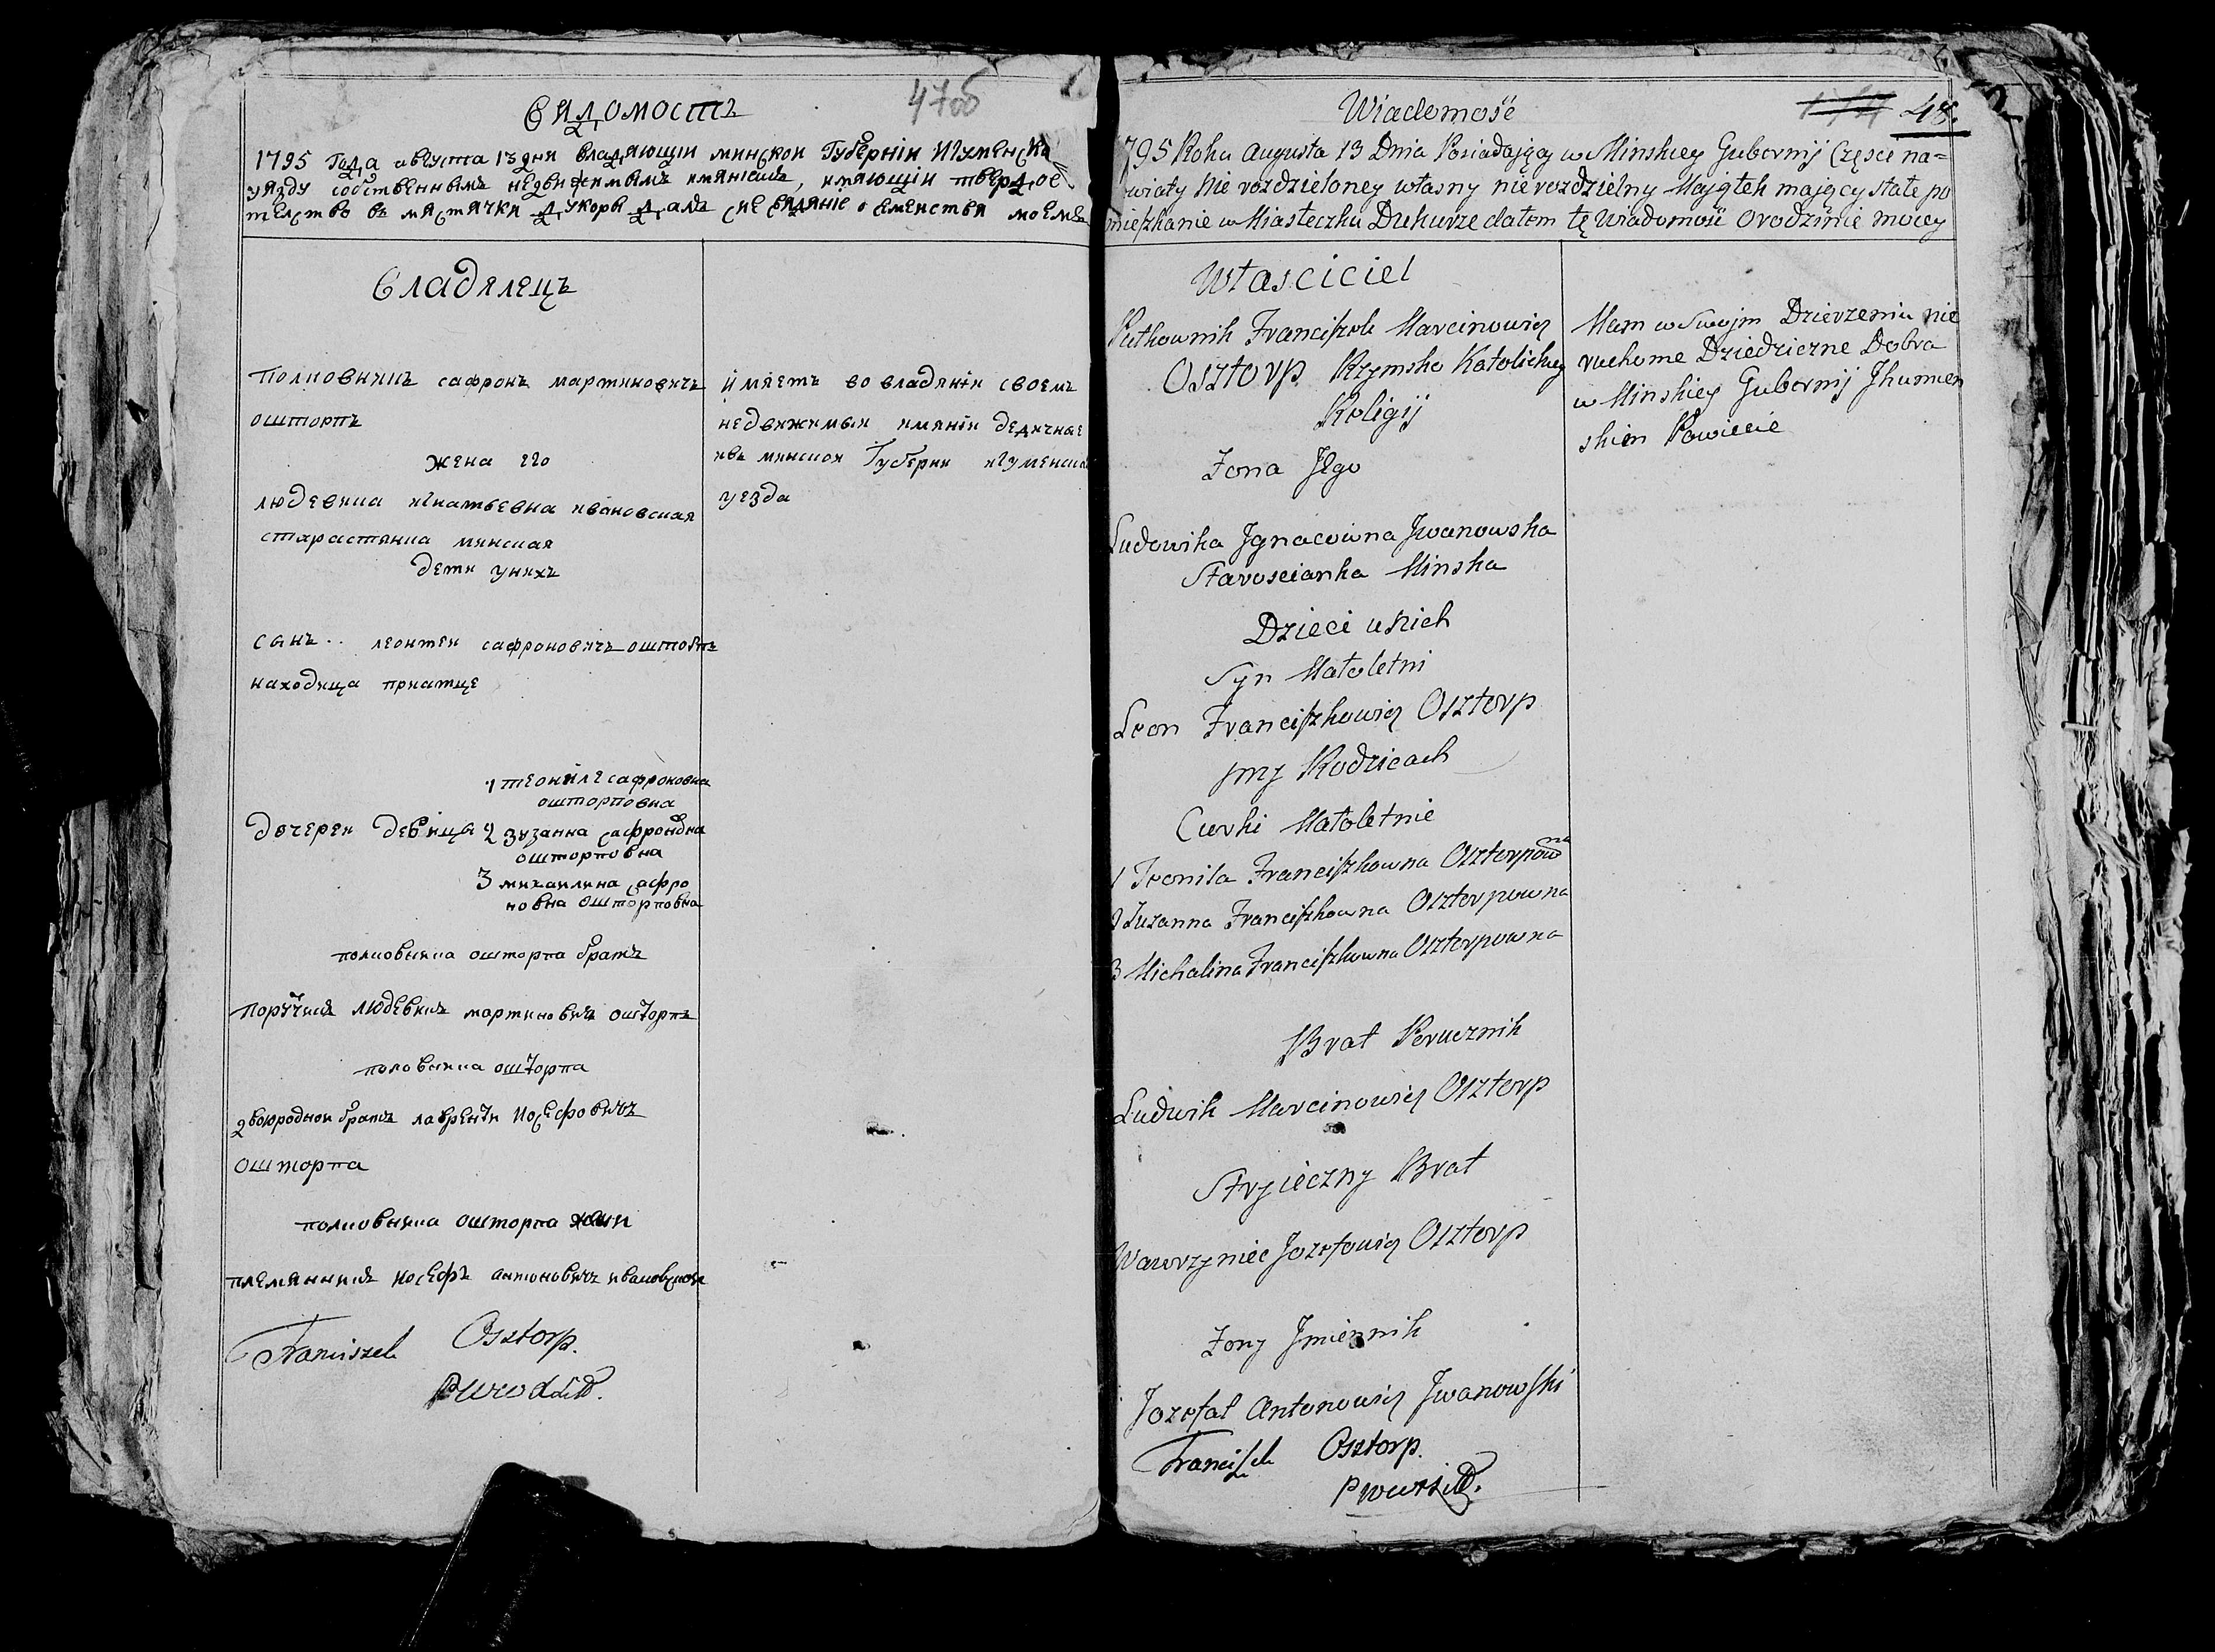 47об
Видомость
1795 Года августа 13 дня владяющіи минской Губерніи Игуменска
уязду собственнымъ недвижимымъ имяніемъ, имяющіи тверДое
телство въ мястячки Дукоры далъ сие вядяніе о семенствя моемъ
Владялецъ
полковникъ сафронъ мартиновичъ
оштортъ
жена его
людевика игнатьевна ивановская
старастянка минская
дети унихъ
сынъ.. леонтеи сафроновичъ оштортъ
находица приатце
1 теониле сафроновна
ошторповна
дочереи девица 2 зузанна сафроновна
ошторповна
3 михаилина сафро
новна ошторповна
полковника ошторпа братъ
поручикъ людевикъ мартиновичъ ошторпъ
полковника ошторпа
2воюроднои братъ лаврентеи иосефовичъ
ошторпа
полковника ошторпа жени
племянникъ иосефъ антоновичъ ивановскои
Franciszek Osztorp.
имяетъ во владянїи своемъ
недвижимыи имянїи дедичнае
ивъ минскоя Губерни игуменска
уезда
Wiadomość
48.
1795 Roku Augusta 13 Dnia Posiadający w Minskiey Gubernij Częsci na=
wiaty Nie rozdzieloney własny nierozdzielny Majątek mający stałe po
mieszkanie w Miasteczku Dukurze dałem tę Wiadomość o rodzinie mojey
Własciciel
Pułkownik Franciszek Marcinowicz
Osztorp Rzymsko Katolickiey
Religij
Zona Jego
Ludowika Jgnacowna Jwanowska
Staroscianka Minska
Dzieci u Nich
Syn Małoletni
Leon Franciszkowicz Osztorp
przy Rodzicach
Curki Małoletnie
1 Teonila Franciszkowna Osztorpowna
2 Zuzanna Franciszkowna Osztorpowna
3 Michalina Franciszkowna Osztorpowna
Brat Porucznik
Ludwik Marcinowicz Osztorp
Stryieczny Brat
Wawrzyniec Jozefowicz Osztorp
Zony Jmiennik
Jozefat Antonowicz Jwanowski
Franciszek Osztorp.
Mam w Swojm Dzierzeniu nie
ruchome Dziedziczne Dobra
w Minskiey Gubernij Jhumen
skim Powiecie